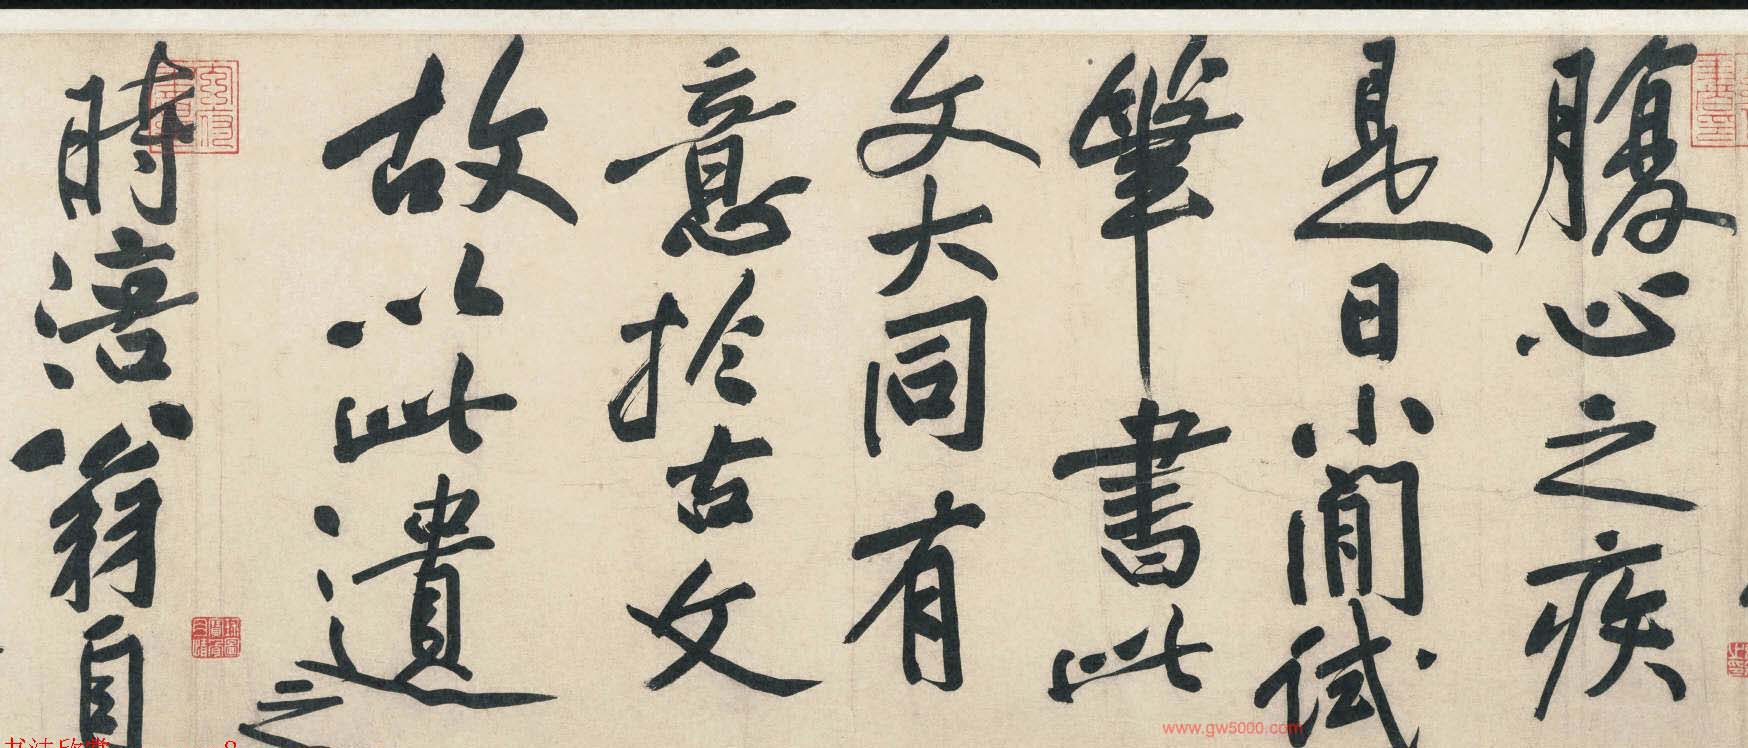 腹心之疾
是日小閒試
筆書此
文大同有
意於古文
故以此遺
之
時涪翁自
www.gw5000.com
书法欣赏
8